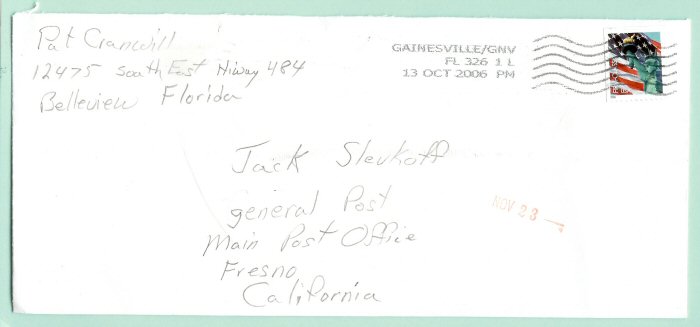 Pat Cranwill
12475 South East Hiway 484
Belleview Florida
GAINESVILLE/GNV
FL 326 1 L
13 OCT 2006 PM
Jack Slevkoff
general Post
Main Post Office
Fresno
California
NOV 28